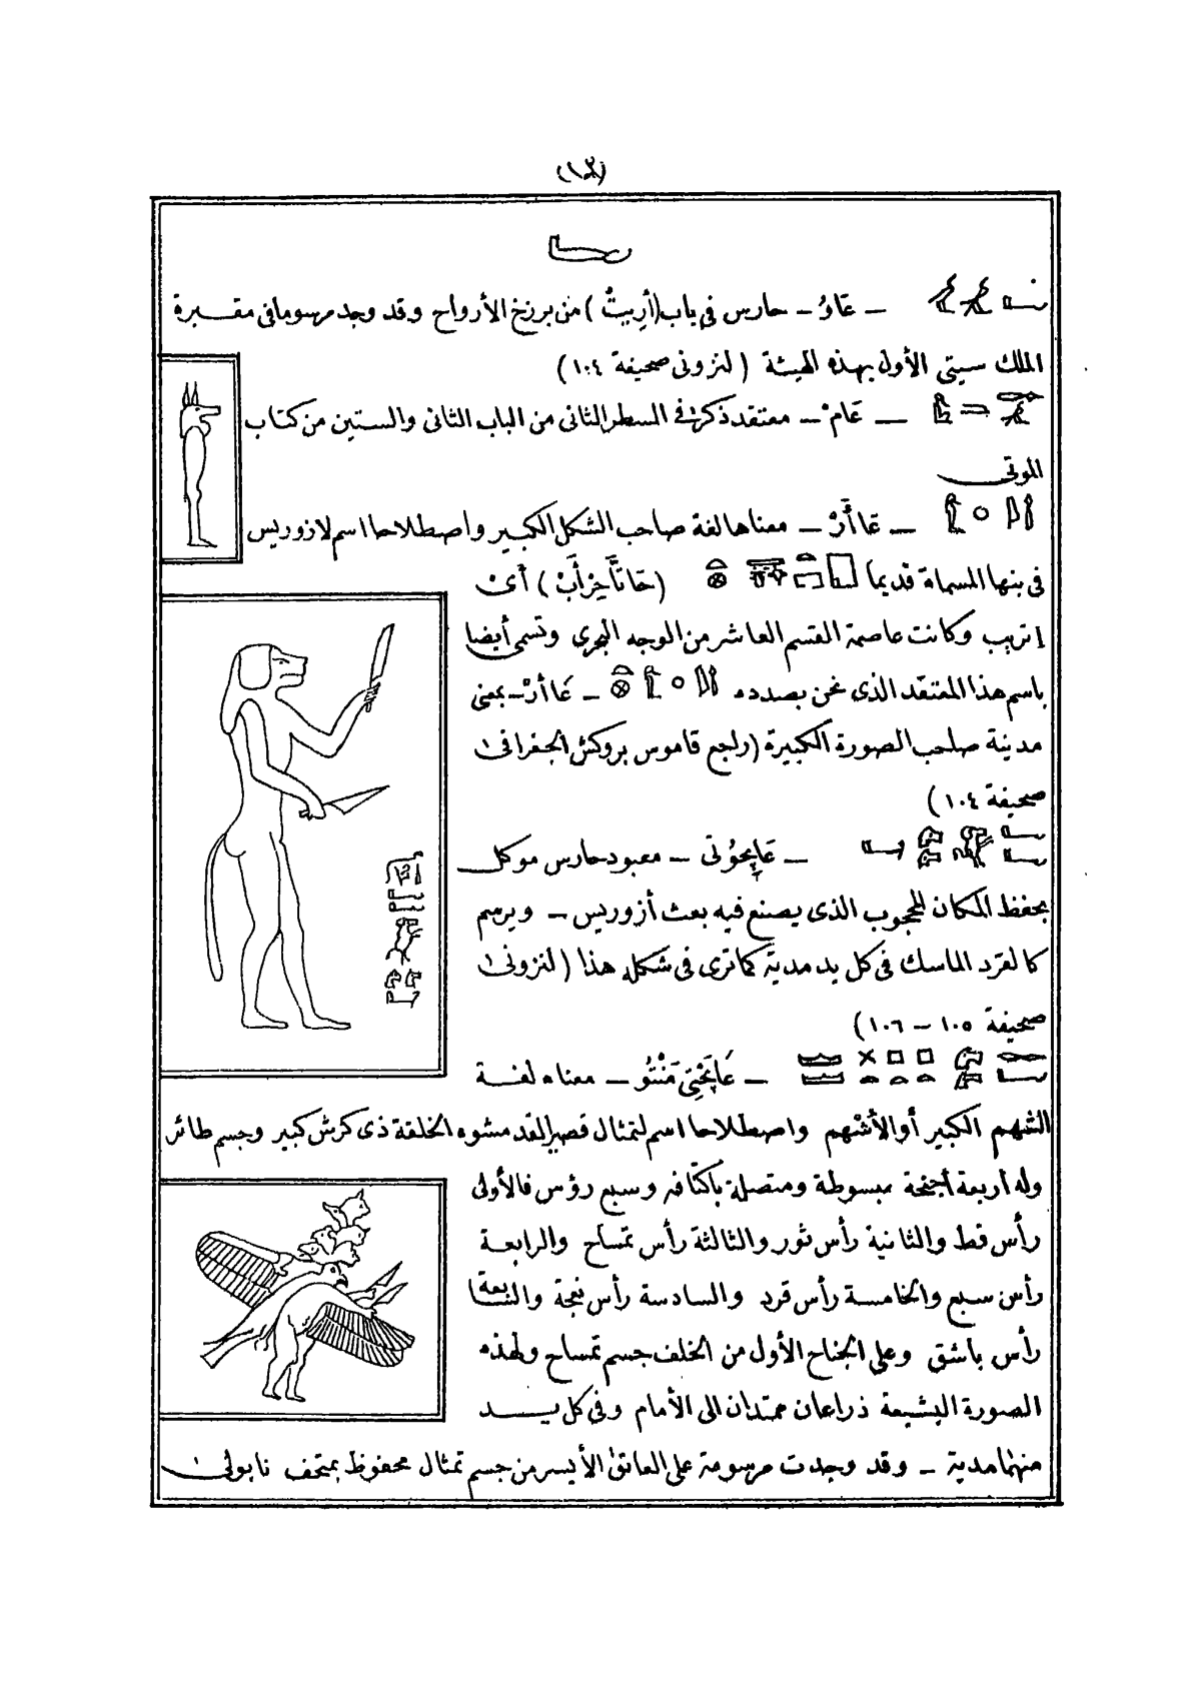 (١٣)
ــ عَاوُ ــ حارس فى باب (أرِبيتْ) من برزخ الأرواح وقد وجد مرسوما فى مقــبرة
الملك سيتى الأول بهذه الهيئة (لنزونى صحيفة ١٠٤)
ــ عَامْ ــ معتقد ذكر فى السطر الثانى من الباب الثانى والستين من كتاب
الموتى
ــ عَاأَرْ ــ معناها لغة صاحب الشكل الكبير واصطلاحا اسم لازوريس
فى بنها المسماة قديما (حَاتَّاحِرْأَبْ) أى
اتريب وكانت عاصمة القسم العاشر من الوجه البحرى وتسمى أيضا
باسم هذا المعتقد الذى نحن بصدده ــ عَاأرْ ــ بمعنى
مدينة صاحب الصورة الكبيرة (راجع قاموس بروكش الجغرافى
صحيفة ١٠٤)
ــ معبود حارس موكل
بحفظ المكان المحجوب الذى يصنع فيه بعث أزوريس ــ ويرسم
كالقرد الماسك فى كل يد مدية كما ترى فى شكله هذا (لنزونى
صحيفة ١٠٥ ــ ١٠٦)
ــ معناه لغــة
الشهم الكبير أو الأشهم واصطلاحا اسم لتمثال قصير القد مشوه الخلقة ذى كرش كبير وجسم طائر
وله أربعة أجنحة مبسوطة ومتصلة بأكتافه وسبع رؤس فالأولى
رأس قط والثانية رأس ثور والثالثة رأس تمساح والرابعــة
رأس سبع والخامسة رأس قرد والسادسة رأس نعجة والسابعة
رأس باشق وعلى الجناح الأول من الخلف جسم تمساح ولهذه
الصورة البشيعة ذراعان ممتدان الى الأمام وفى كل يــد
منهما مدية ــ وقد وجدت مرسومة على العاتق الأيسر من جسم تمثال محفوظ بمتحف نابولى